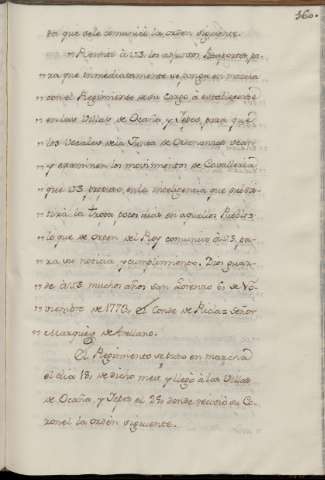 360.
ra que se le comunicó la orden siguiente.
" Remito à VS. los adjuntos Pasaportes, pa-
" ra que inmediatamente se ponga en marcha
" con el Regimiento de su cargo à establecerse
" en las Villas de Ocaña, y Yepes, para que
" los Vocales de la Junta de Ordenanzas vean
" y examinen los movimientos de Cavalleria
" que VS. propuso, en la inteligencia que subsis-
" tirá la tropa pocos dias en aquellos Pueblos
" lo que de orden del Rey comunico à VS. pa-
" ra su noticia y cumplimiento. Dios guar-
" de à VS muchos años San Lorenzo 6, de No-
" viembre de 1770, El Conde de Ricla = Señor
" Marquès de Arellano.
El Regimiento se puso en marcha
el dia 18, de dicho mes y llegó à las Villas
de Ocaña, y Yepes el 25, donde recivió su Co-
ronel la orden siguiente.